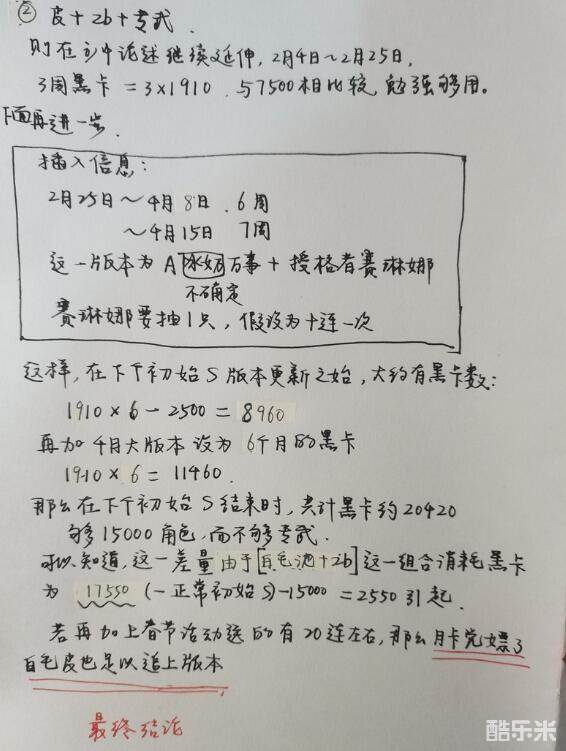 ② 皮+2b+专武.
则在①中论述继续延伸, 2月4日~2月25日,
3周黑卡 = 3×1910 与7500相比较, 勉强够用。
下面再进一步.
插入信息:
2月25日~4月8日. 6周
~4月15日 7周
这一版本为 A 冰奶万事 + 授格者赛琳娜
不确定
赛琳娜要抽1只, 假设为十连一次
这样, 在下个初始S版本更新之始, 大约有黑卡数:
1910×6-2500=8960
再加4月大版本设为6个月的黑卡
1910×6=11460.
那么在下个初始S结束时, 共计黑卡约20420
够15000角色, 而不够专武.
可以知道, 这一差量由于[白毛池+2b]这一组合消耗黑卡
为 17550 (一正常初始S)-15000=2550引起.
若再加上春节活动送的有20连左右, 那么月卡党嫖了
白毛皮也足以追上版本
最终结论
酷乐米